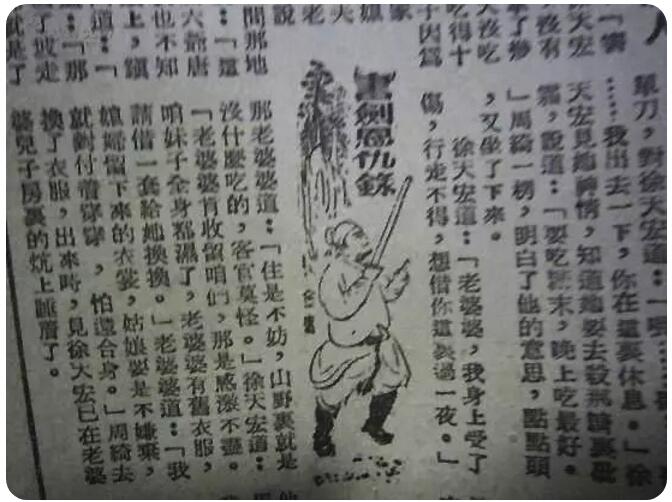 人
沒有
天宏
了摻
沒吃
吃得十
子因為
家
媳
夫
老
說
間那地
：「還
六爺唐
也不知
上，鎮
道：「
：「那
了坡走
就是了
單刀，對徐天宏道：
……我出去一下，你在這裏休息。」徐
天宏見她神情，知道她要去殺　糖裏砒
霜，說道：「要吃　末，晚上吃最好。
」周綺一楞，明白了他的意思，點點頭
，又坐了下來。
徐天宏道：「老婆婆，我身上受了
傷，行走不得，想借你這裏過一夜。」
書劍恩仇錄
金庸
那老婆婆道：「住是不妨，山野裏就是
沒什麼吃的，客官莫怪。」徐天宏道：
「老婆婆肯收留咱們，那是感激不盡。
咱妹子全身都濕了，老婆婆有舊衣服，
請借一套給她換換。」老婆婆道：「我
媳婦留下來的衣裳，姑娘要是不嫌棄，
就對付着穿穿，怕還合身。」周綺去
換了衣服，出來時，見徐大宏已在老婆
婆兒子房裏的炕上睡着了。